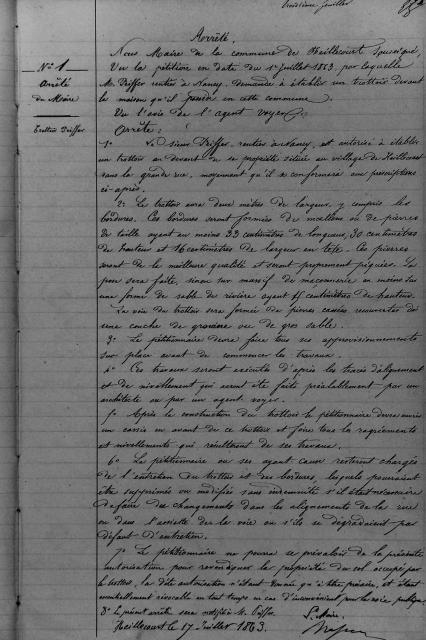 troisième feuillet
Arrêté.
Nous Maire de la commune de Heillecourt soussigné,
Vu la pétition en date du 1er Juillet 1863 par laquelle
N° 1
Arrêté
du Maire
Trottoir Piffer
M. Piffer rentier à Nancy, demande à établir un trottoir devant
la maison qu'il possède en cette commune.
Vu l'avis de l'agent voyer,
Arrête:
1° Le sieur Piffer, rentier à Nancy, est autorisé à établir
un trottoir au devant de sa propriété située au village de Heillecourt
dans la grande rue, moyennant qu'il se conformera aux prescriptions
ci-après.
2° Le trottoir aura deux mètres de largeur, y compris les
bordures. Ces bordures seront formées de moellons ou de pierres
de taille ayant au moins 33 centimètres de longueur, 30 centimètres
de hauteur et 16 centimètres de largeur en tête. Ces pierres
seront de la meilleure qualité et seront proprement piquées. La
pose sera faite, sinon sur massif de maçonnerie au moins sur
une forme de sable de rivière ayant 15 centimètres de hauteur.
La voie du trottoir sera formée de pierres cassées recouvertes d'
une couche de gravier ou de gros sable.
3° Le pétitionnaire devra faire tous ses approvisionnements
sur place avant de commencer les travaux.
4° Ces travaux seront exécutés d'après les tracés d'alignement
et de nivellement qui seront faits préalablement par un
architecte ou par un agent voyer.
5° Après la construction du trottoir le pétitionnaire devra
un cassis en avant de ce trottoir et faire tous les ragréements
et nivellements qui résulteront de ses travaux.
6° Le pétitionnaire ou ses ayant cause resteront chargés
de l'entretien du trottoir et des bordures, lesquels pourraient
être supprimés ou modifiés sans indemnité s'il était nécessaire
de faire des changements dans les alignements de la rue
ou dans l'assiette de la voie ou s'ils se dégradaient par
défaut d'entretien.
7° Le pétitionnaire ne pourra se prévaloir de la présente
autorisation pour revendiquer la propriété du sol occupé par
le trottoir, la dite autorisation n'étant donnée qu'à titre précaire, et étant
essentiellement révocable en tout temps en cas d'inconvénient pour la voie publique.
8° Le présent arrêté sera notifié à M. Piffer.
Heillecourt le 17 Juillet 1863.
Le Maire,